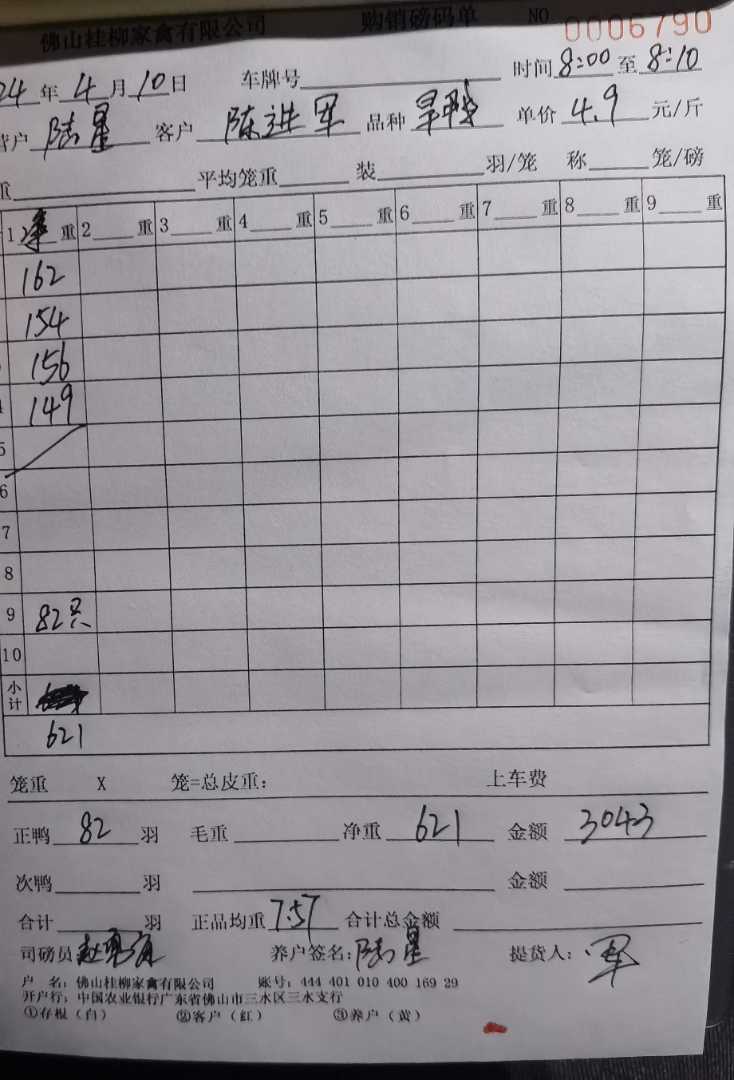 佛山桂柳家禽有限公司 购销磅码单 NO 0006790
24 年 4 月 10 日 车牌号 时间 8:00 至 8:10
户 陆星 客户 陈进军 品种 旱鸭 单价 4.9 元/斤
重 平均笼重 装 羽/笼 称 笼/磅
1 净 重 2 重 3 重 4 重 5 重 6 重 7 重 8 重 9 重
162
154
156
4 149
5
6
7
8
9 82只
10
小计
621
笼重 X 笼=总皮重: 上车费
正鸭 82 羽 毛重 净重 621 金额 3043
次鸭 羽 金额
合计 羽 正品均重 7.57 合计总金额
司磅员 养户签名: 陆星 提货人: 军
户 名: 佛山桂柳家禽有限公司 账号: 444 401 010 400 169 29
开户行: 中国农业银行广东省佛山市三水区三水支行
①存根（白） ②客户（红） ③养户（黄）